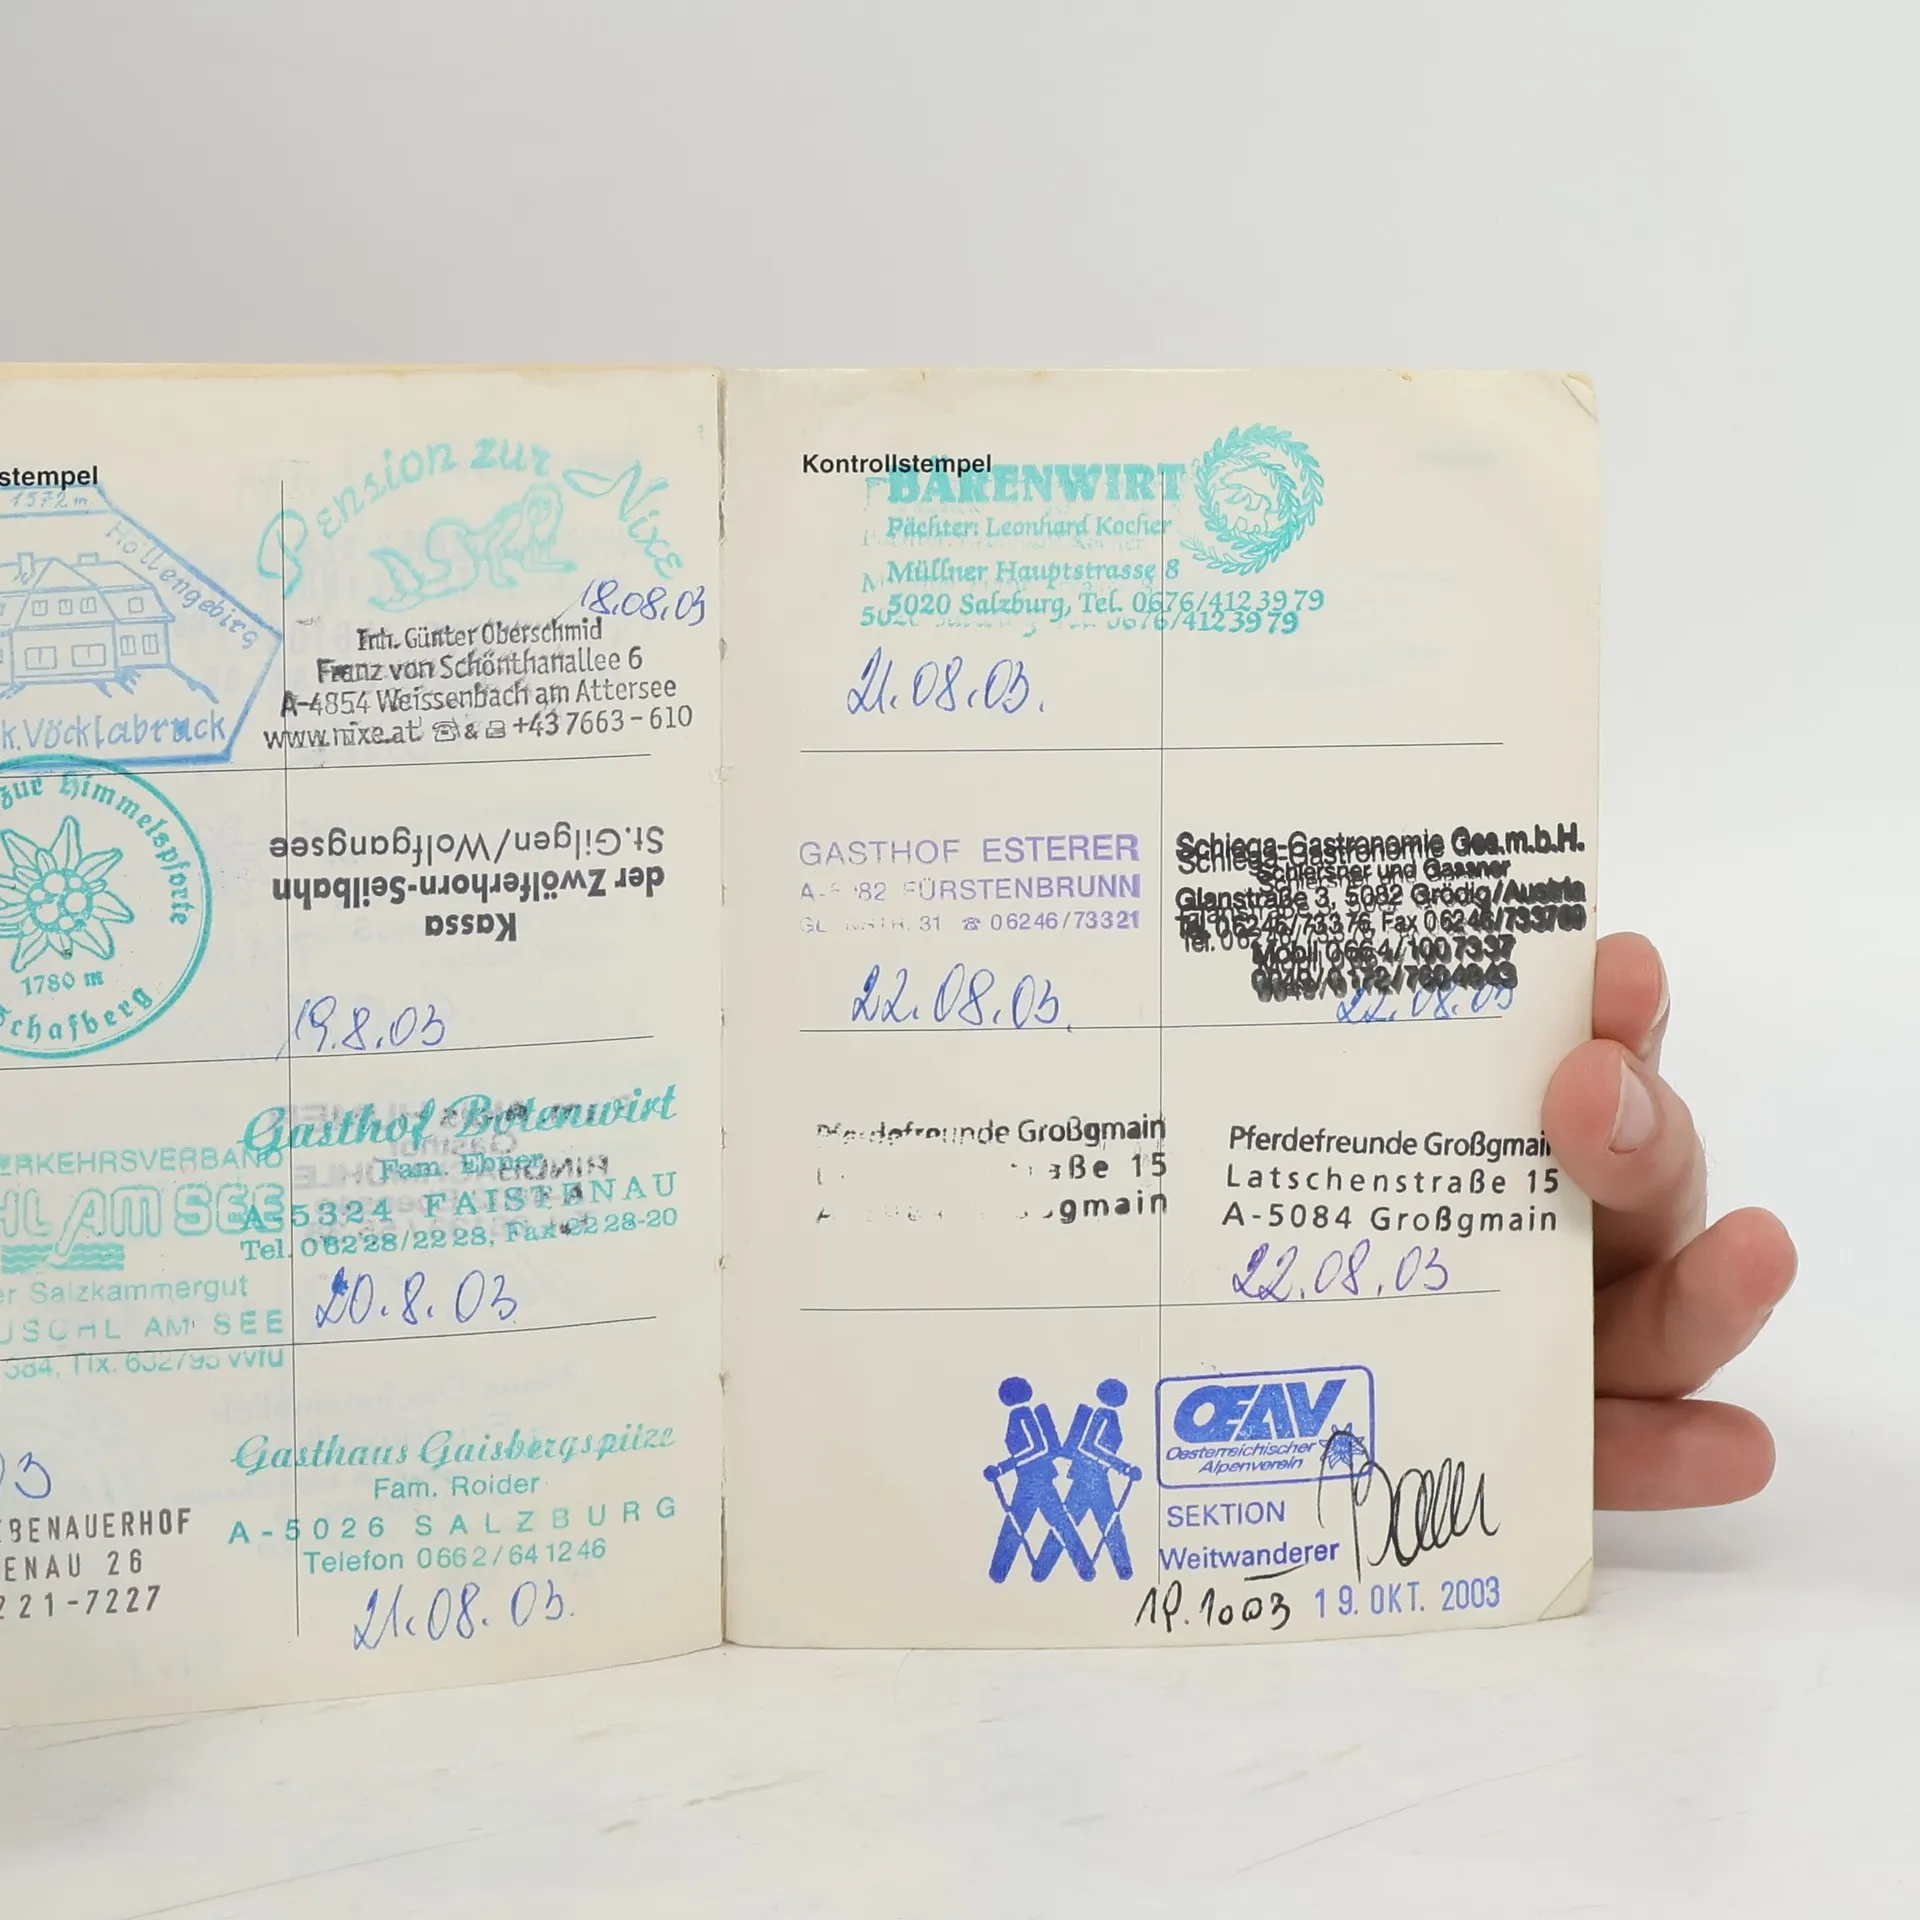 stempel
1572 m
Höllengebirg
k. Vöcklabruck
Pension zur Nixe
18.08.03
Inh. Günter Oberschmid
Franz von Schönthanallee 6
A-4854 Weissenbach am Attersee
www.nixe.at ☎ & +43 7663-610
zur Himmelspforte
1780 m
Schafberg
Kassa
der Zwölferhorn-Seilbahn
St.Gilgen/Wolfgangsee
19.8.03
ERKEHRSVERBAND
HL AM SEE
er Salzkammergut
USCHL AM SEE
Gasthof Botenwirt
Fam. Ebner
A-5324 FAISTENAU
Tel. 06228/2228, Fax 2228-20
20.8.03
03
EBENAUERHOF
ENAU 26
221-7227
Gasthaus Gaisbergspitze
Fam. Roider
A-5026 SALZBURG
Telefon 0662/641246
21.08.03.
Kontrollstempel
BÄRENWIRT
Pächter: Leonhard Kocher
Müllner Hauptstrasse 8
5020 Salzburg, Tel. 0676/4123979
21.08.03.
GASTHOF ESTERER
FÜRSTENBRUNN
31 ☎ 06246/73321
22.08.03.
Schiega-Gastronomie Ges.m.b.H.
Schiersner und Gassner
Glanstraße 3, 5082 Grödig/Austria
Tel. 06246/73376, Fax 06246/733760
Mobil 0664/1007337
22.08.03
Pferdefreunde Großgmain
aße 15
gmain
Pferdefreunde Großgmain
Latschenstraße 15
A-5084 Großgmain
22.08.03
OEAV
Oesterreichischer
Alpenverein
SEKTION
Weitwanderer
19.1003 19. OKT. 2003